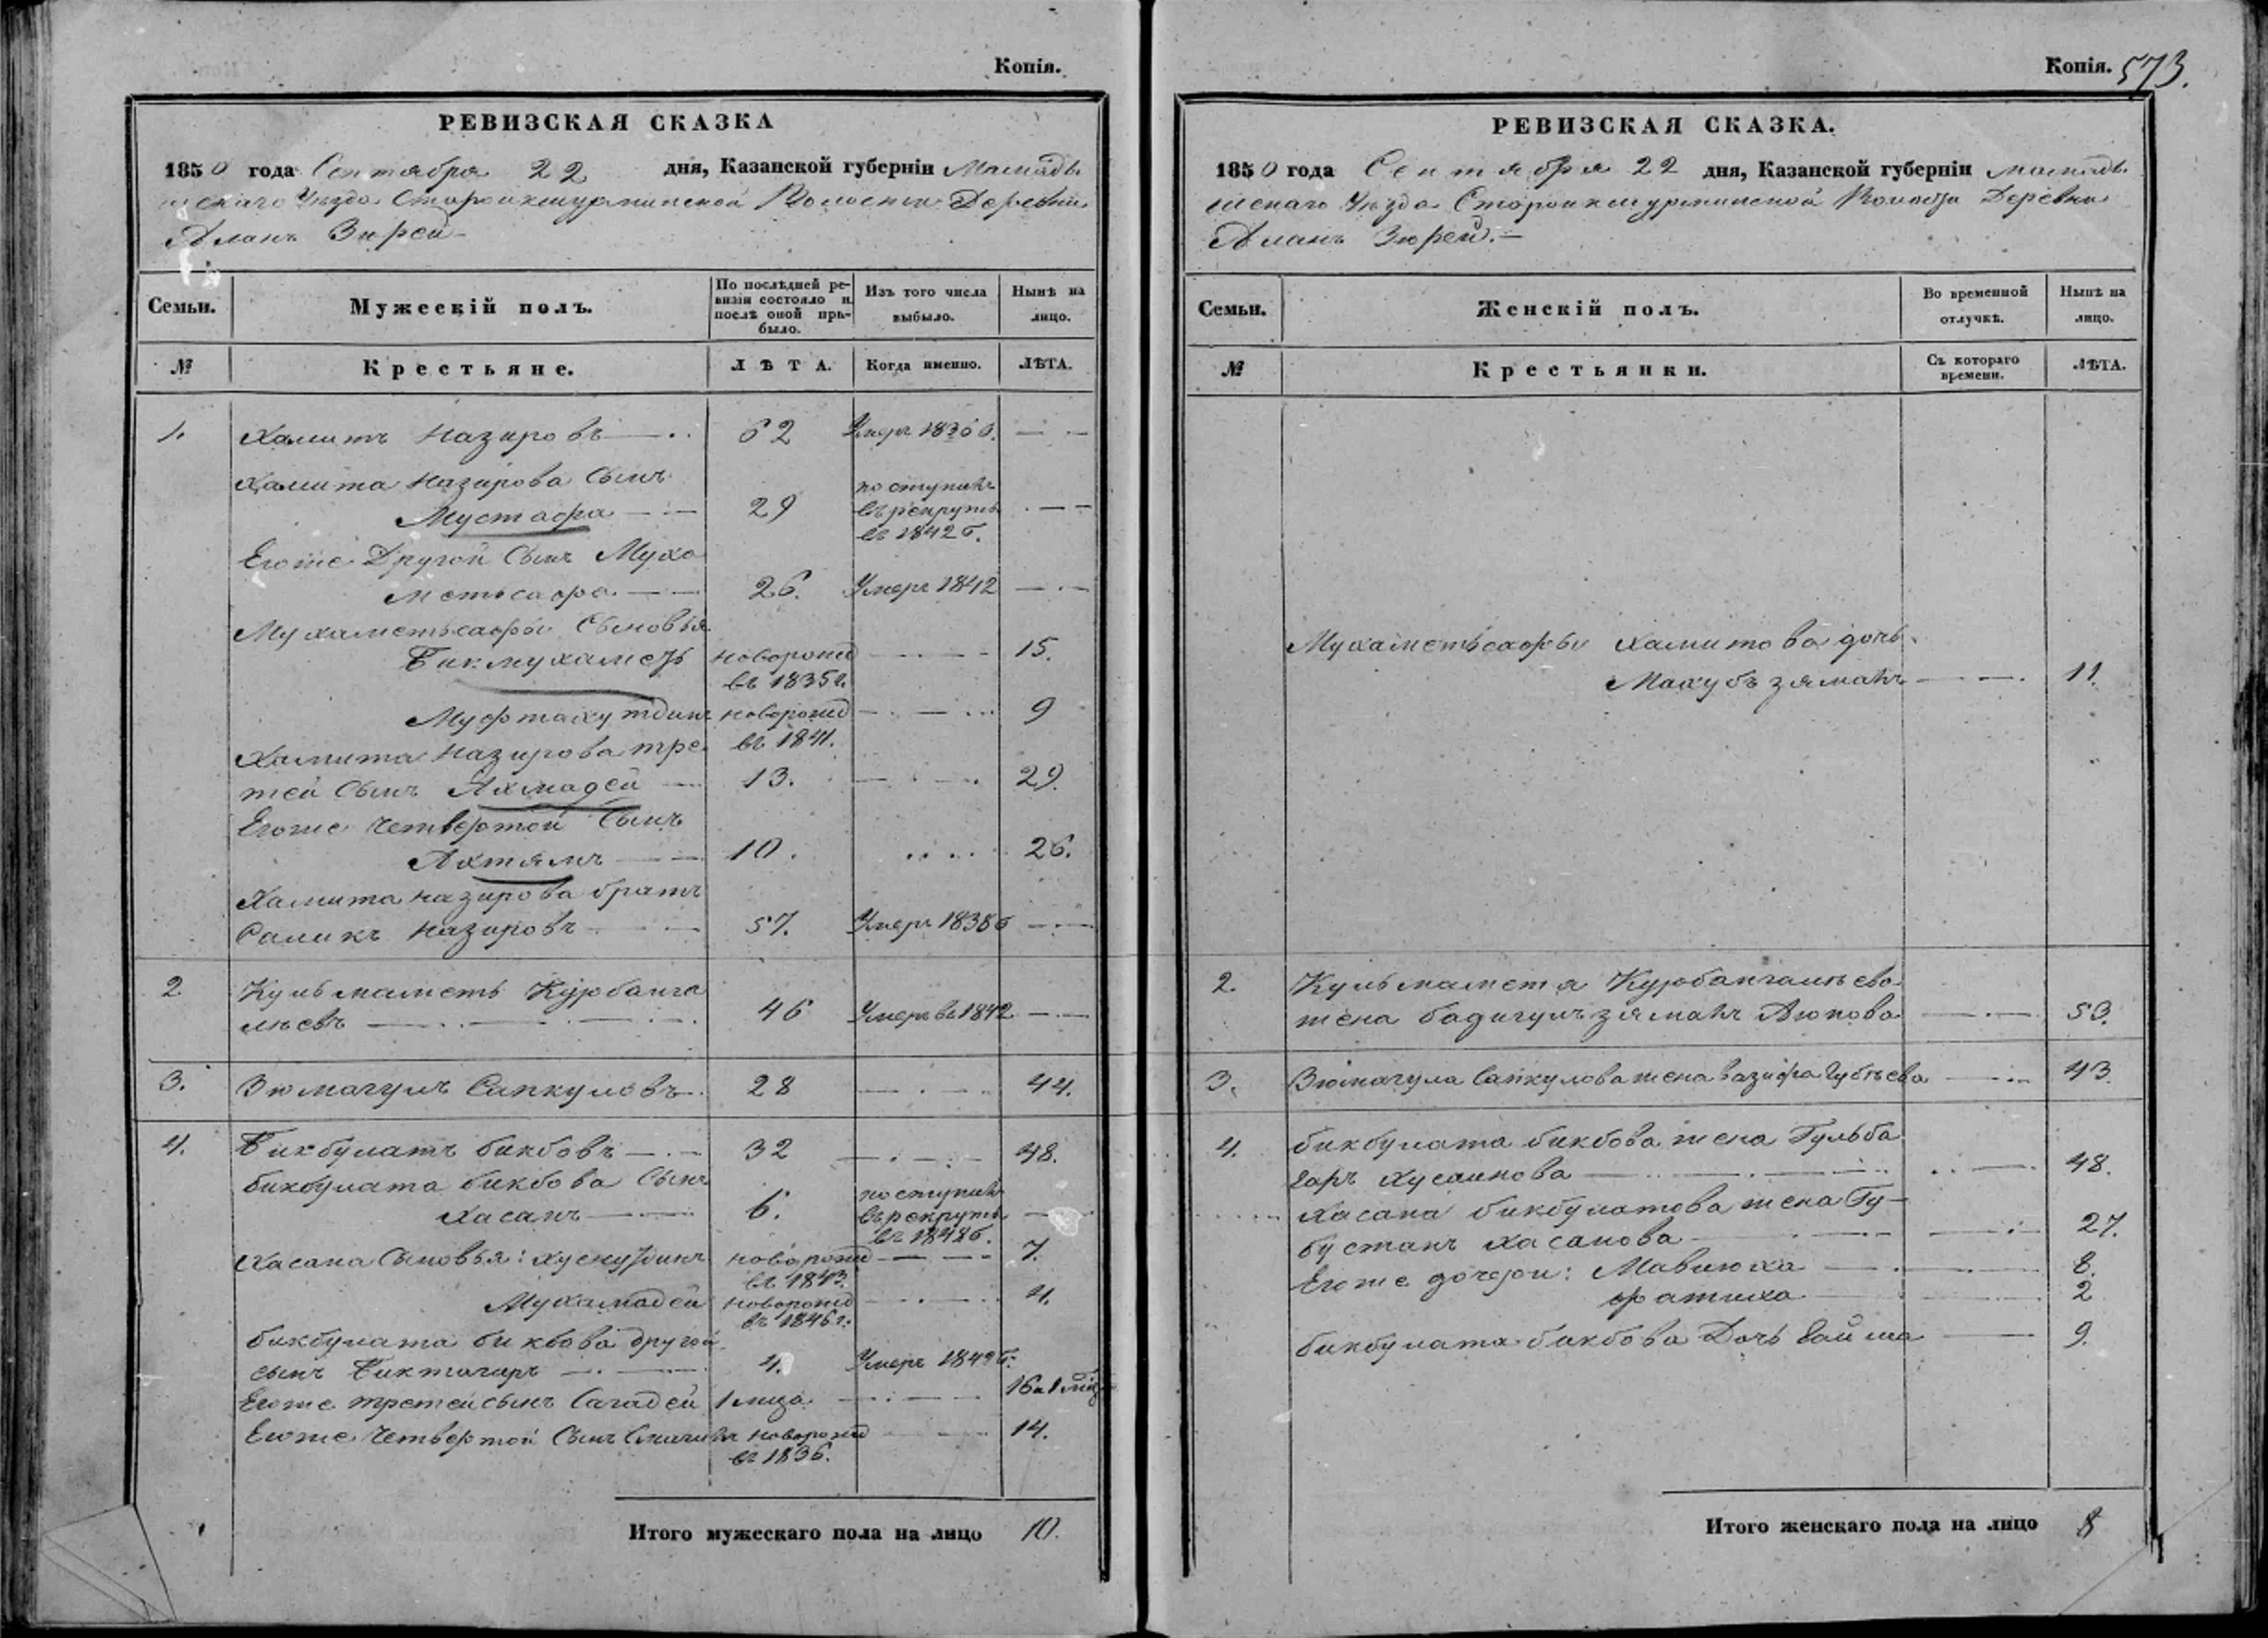 Копія.
РЕВИЗСКАЯ СКАЗКА
1850 года Сентября 22 дня, Казанской губерніи Мамады
шскаго Уезда Волости Деревни
Аланъ Зюрей
Семьи. Мужескій полъ. По послѣдней ре- Изъ того числа Нынѣ на
визіи состояло и выбыло. лицо.
послѣ оной при-
было.
№ Крестьяне. ЛѢТА. Когда именно. ЛѢТА.
1. Хамитъ Назировъ 62 Умеръ
Хамита Назирова Сынъ поступилъ
Мустафа 29 въ рекруты
въ 1842 г.
Егоже Другой Сынъ Муха
метьсафа 26. Умеръ 1842
Мухаметьсафы Сыновья
Бикмухаметь новорожд 15.
въ 1835 г.
Муфтахутдинъ новорожд 9
въ 1841.
Хамита Назирова тре
тей Сынъ Ахмадей 13. 29.
Егоже Четвертой Сынъ
Ахтямъ 10. 26.
Хамита назирова братъ
Саликъ Назировъ 57. Умеръ 1838 г
2 Кульмаметь Курбанга
лѣевъ 46 Умеръ въ 1842
3. Зюмагулъ Сапкуловъ 28 44.
4. Бикбулатъ бикбовъ 32 48.
бикбулата бикбова Сынъ поступилъ
Хасанъ 6. въ рекруты
въ 1848 г.
Хасана Сыновья: Хуснутдинъ новорожд 7.
въ 1843.
Мухамадей новорожд 4.
въ 1846 г.
бикбулата бикбова другой
сынъ Биктагиръ 4. Умеръ 1849 г.
Егоже третей сынъ Сагадей 1 мѣца 16 и 1 мѣц
Егоже Четвертой Сынъ новорожд 14.
въ 1836.
Итого мужескаго пола на лицо 10.
Копія. 573.
РЕВИЗСКАЯ СКАЗКА.
1850 года Сентября 22 дня, Казанской губерніи мамады
шскаго Уезда Волости Деревни
Аланъ Зюрей.
Семьи. Женскій полъ. Во временной Нынѣ на
отлучкѣ. лицо.
№ Крестьянки. Съ котораго ЛѢТА.
времени.
Мухаметьсафы Хамитова дочь
Махубзяманъ 11.
2. Кульмаметя Курбангалѣева
жена бадигулъзяманъ Аюпова 53.
3. Зюмагула Сапкулова жена 43.
4. бикбулата бикбова жена Гульба
гаръ Хусаинова 48.
Хасана бикбулатова жена Гу-
бустанъ Хасанова 27.
Егоже дочери: Мавлюха 8.
фатиха 2
бикбулата бикбова Дочь 9.
Итого женскаго пола на лицо 8